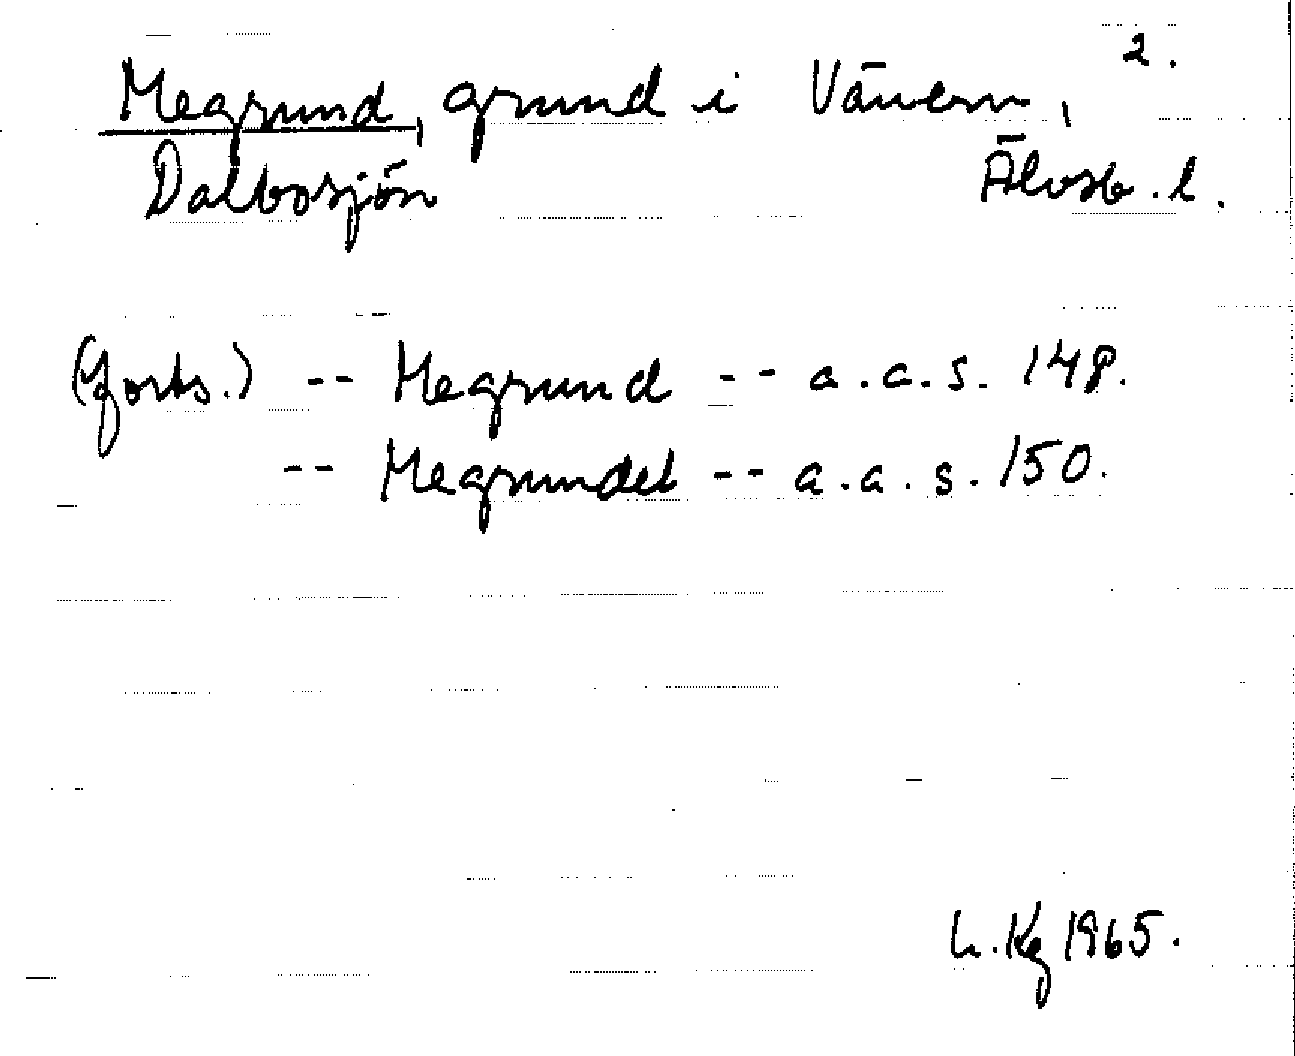 2.
Megrund, grund i Vänern,
Dalbosjön Älvsb. l.
(forts.) -- Megrund -- a.a.s. 148.
-- Megrundet -- a.a.s. 150.
L.Kg 1965.